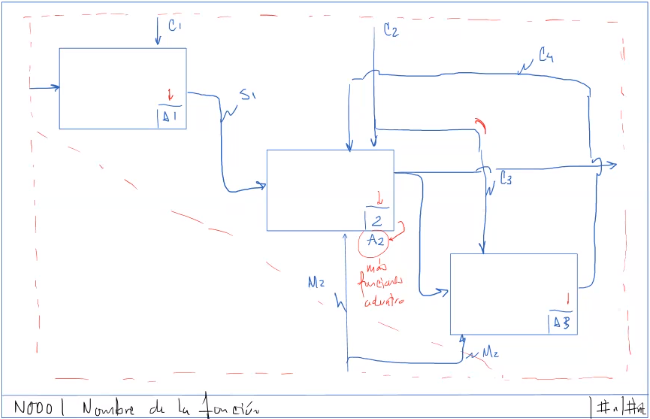 C1
C2
C4
S1
A1
C3
2
A2
más
funciones
adentro
M2
A3
M2
N000 | Nombre de la función
#n/#